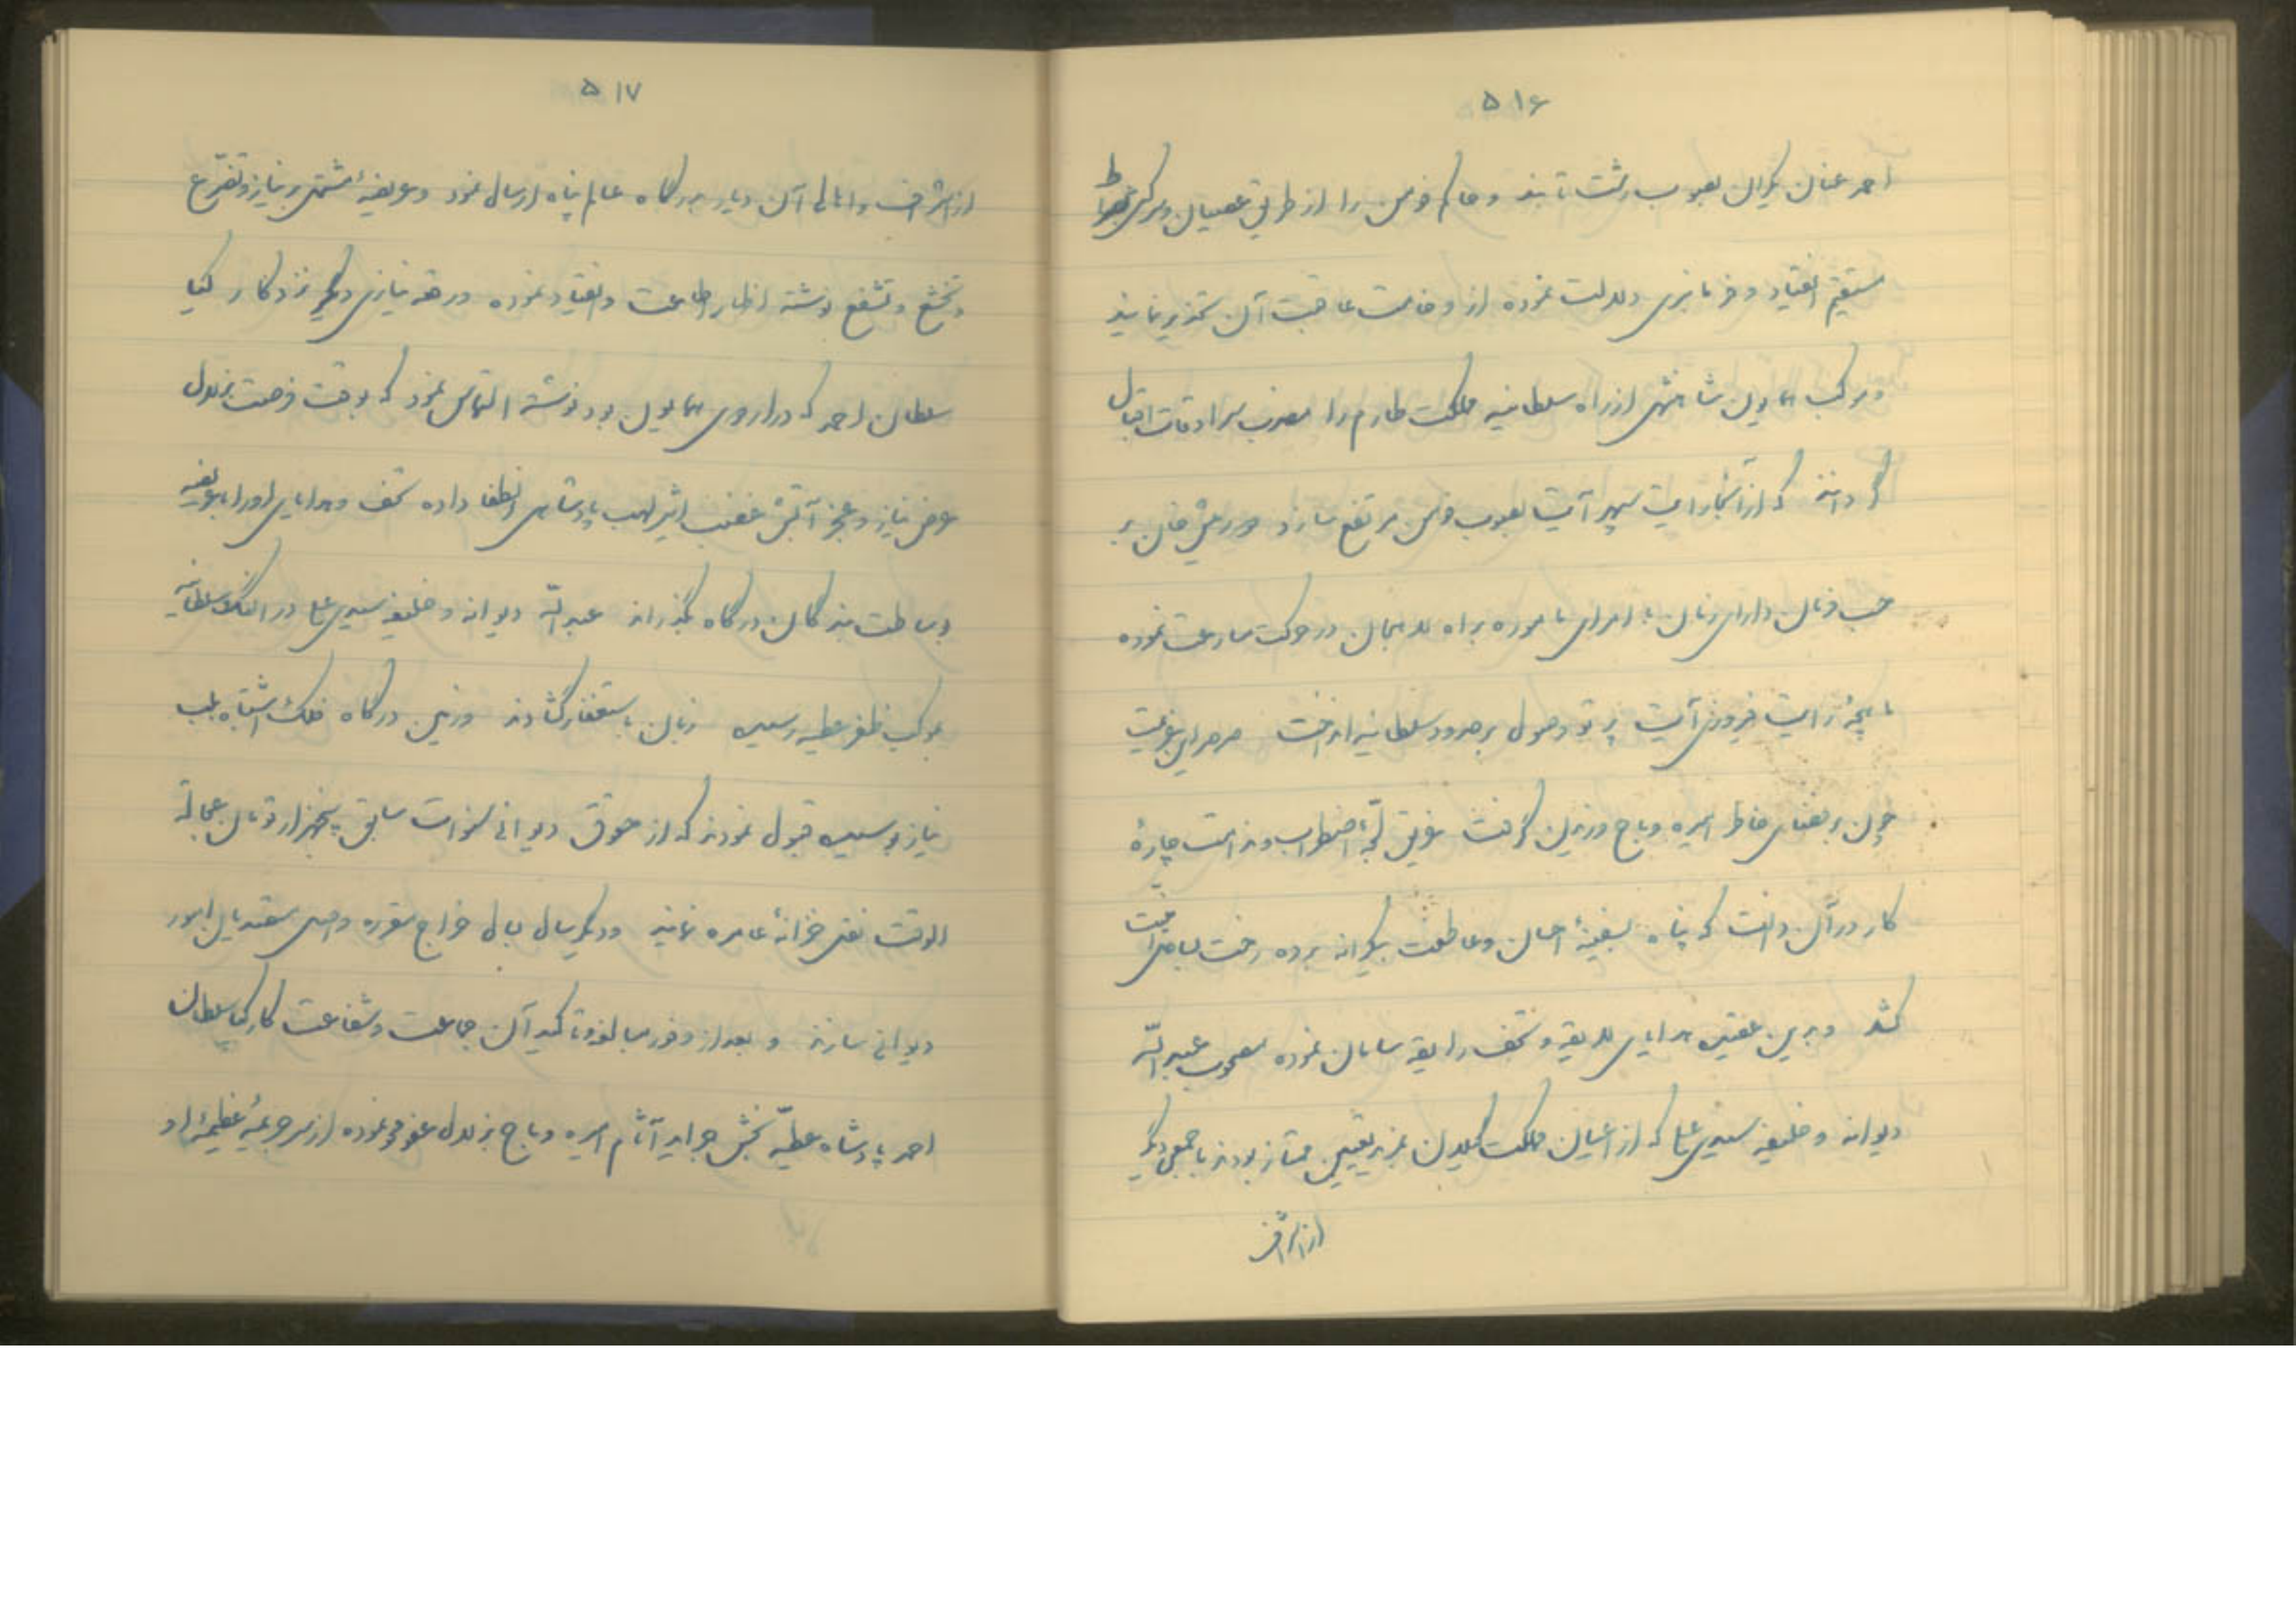 ۵۱۶
احمد عنان یکران بصوب رشت تابند و حاکم فومن را از طریق عصیان و سرکشی بصراط
مستقیم انقیاد و فرمانبری دلالت نموده از وخامت عاقبت آن تحذیر نمایند
و موکب همایون شاهنشهی از راه سلطانیه مملکت طارم را مضرب سرادقات اقبال
گردانند که از آنجا رایت سپهر آیت بصوب فومن مرتفع سازد درمش خان بر
حسب فرمان دارای زمان با امرای مأموره براه لاهیجان در حرکت مسارعت نموده
ماهچهٔ رایت فیروزی آیت پرتو وصول بر حدود سلطانیه انداخت صرصر این عزیمت
چون بر فضای خاطر امیره دباج وزیدن گرفت غریق لجّهٔ اضطراب و ندامت چارهٔ
کار در آن دانست که پناه بسفینهٔ احسان و عاطفت بیکرانه برده رخت بساحل نجات
کشد و بدین عقیده هدایای لایقه و تحف رایقه سامان نموده مصحوب عبدالله
دیوانه و خلیفه سیدی علی که از اعیان مملکت گیلان بمزید تعین ممتاز بودند با جمعی دیگر
از اشراف
۵۱۷
از اشراف و اهالی آن دیار بدرگاه عالم پناه ارسال نمود و عریضهٔ مشتمل بر نیاز و تضرّع
و تخشع و تشفع نوشته اظهار اطاعت و انقیاد نموده و رقعه نیازی دیگر نزد کار کیا
سلطان احمد که در اردوی همایون بود نوشته التماس نمود که بوقت فرصت بزلال
عرض نیاز و عجز آتش غضب اثیر لهب پادشاهی انطفا داده تحف و هدایای او را با عریضه
بوساطت بندگان درگاه بگذراند عبدالله دیوانه و خلیفه سیدی علی در النگ سلطانیه
بموکب ظفر عطیه رسیده زبان باستغفار گشادند و زمین درگاه فلک اشتباه بلب
نیاز بوسیده قبول نمودند که از حقوق دیوانی سنوات سابق پنجهزار تومان عجالة
الوقت نقد خزانهٔ عامره نمایند و دیگر سال بسال خراج مقرره واصل متقدیان امور
دیوانی سازند و بعد از وفور مبالغه و تأکید آن جماعت و شفاعت کارکیا سلطان
احمد پادشاه عطیّه بخش جراید آثام امیره دباج بزلال عفو محو نموده از سر جریمهٔ عظیمهٔ او